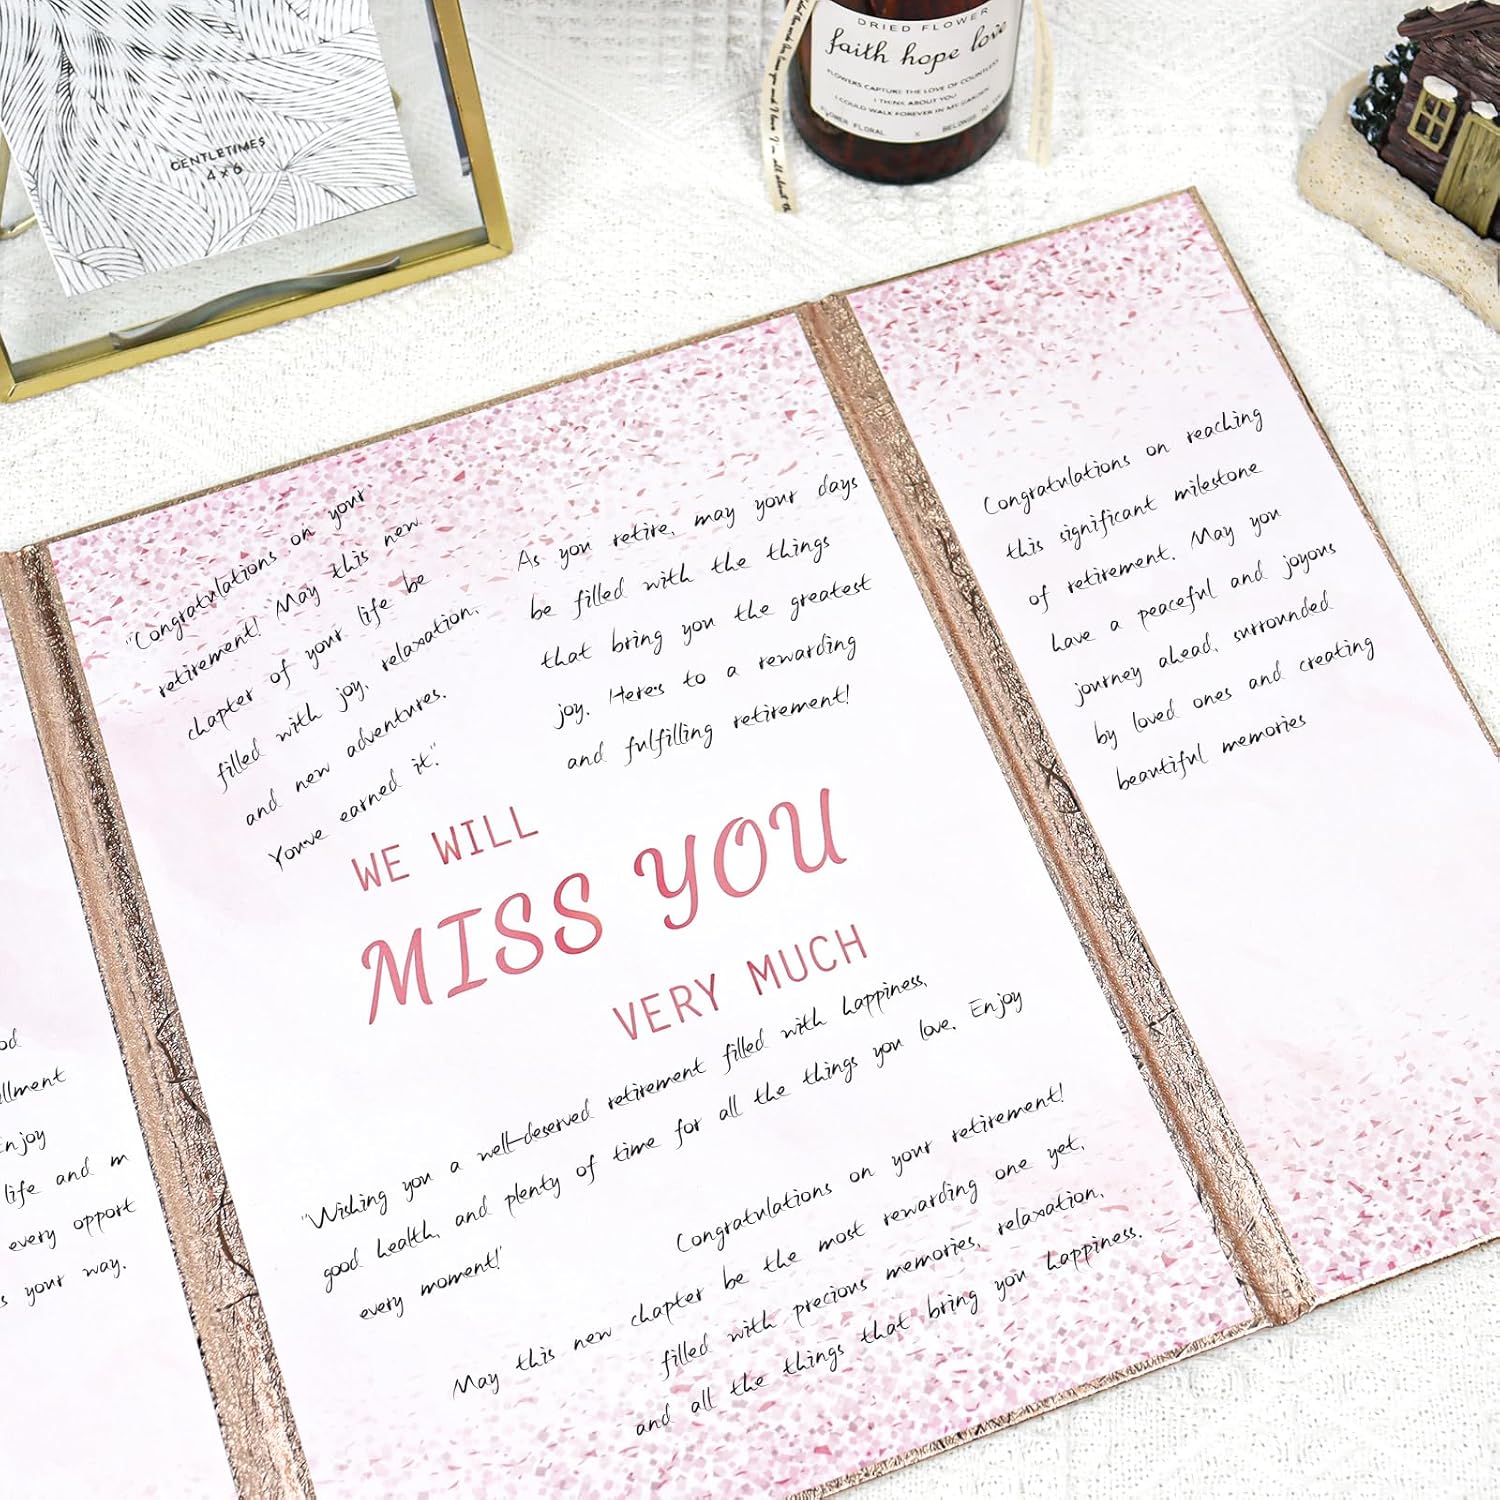 GENTLETIMES
4x6
DRIED FLOWER
faith hope love
FLOWERS CAPTURE THE LOVE OF COUNTLESS
I THINK ABOUT YOU
I COULD WALK FOREVER IN MY GARDEN
FLORAL X BELONGS TO
"Congratulations on your
retirement! May this new
chapter of your life be
filled with joy, relaxation,
and new adventures.
You've earned it."
As you retire, may your days
be filled with the things
that bring you the greatest
joy. Here's to a rewarding
and fulfilling retirement!
WE WILL
MISS YOU
VERY MUCH
"Wishing you a well-deserved retirement filled with happiness,
good health, and plenty of time for all the things you love. Enjoy
every moment!"
Congratulations on your retirement!
May this new chapter be the most rewarding one yet,
filled with precious memories, relaxation,
and all the things that bring you happiness.
Congratulations on reaching
this significant milestone
of retirement. May you
have a peaceful and joyous
journey ahead, surrounded
by loved ones and creating
beautiful memories
Enjoy
life and m
every opport
your way.